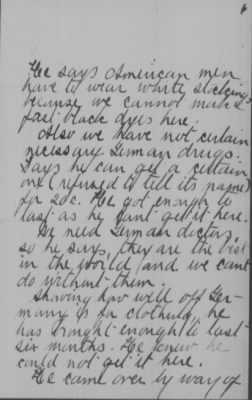 He says American men
have to wear white stockings
because we cannot make
fast black dyes here.
Also we have not certain
necessary German drugs.
Says he can get a certain
one (refused to tell its name)
for 20c. He got enough to
last as he can't get it here.
We need German doctors,
so he says, they are the best
in the world and we can't
do without them.
Showing how well off Ger-
many is for clothing, he
has brought enough to last
six months. He knew he
could not get it here.
He came over by way of